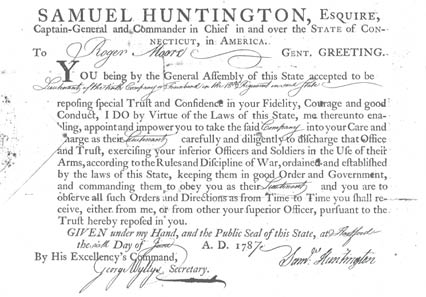 SAMUEL HUNTINGTON, Esquire,
Captain-General and Commander in Chief in and over the State of Con-
necticut, in America.
To Roger Moore Gent. GREETING.
YOU being by the General Assembly of this State accepted to be
Lieutenant of the Company in the Regiment in said State
reposing special Trust and Confidence in your Fidelity, Courage and good
Conduct, I DO by Virtue of the Laws of this State, me thereunto ena-
ling, appoint and impower you to take the said Company into your Care and
Charge as their Lieutenant carefully and diligently to discharge that Office
and Trust, exercising your inferior Officers and Soldiers in the Use of their
Arms, according to the Rules and Discipline of War, ordained and established
by the laws of this State, keeping them in good Order and Government,
and commanding them to obey you as their Lieutenant and you are to
observe all such Orders and Directions as from Time to Time you shall re-
ceive, either from me, or from other your superior Officer, pursuant to the
Trust hereby reposed in you.
GIVEN under my Hand, and the Public Seal of this State, at Hartford
the Day of June A. D. 1787
By His Excellency's Command,
George Wyllys Secretary.
Saml. Huntington